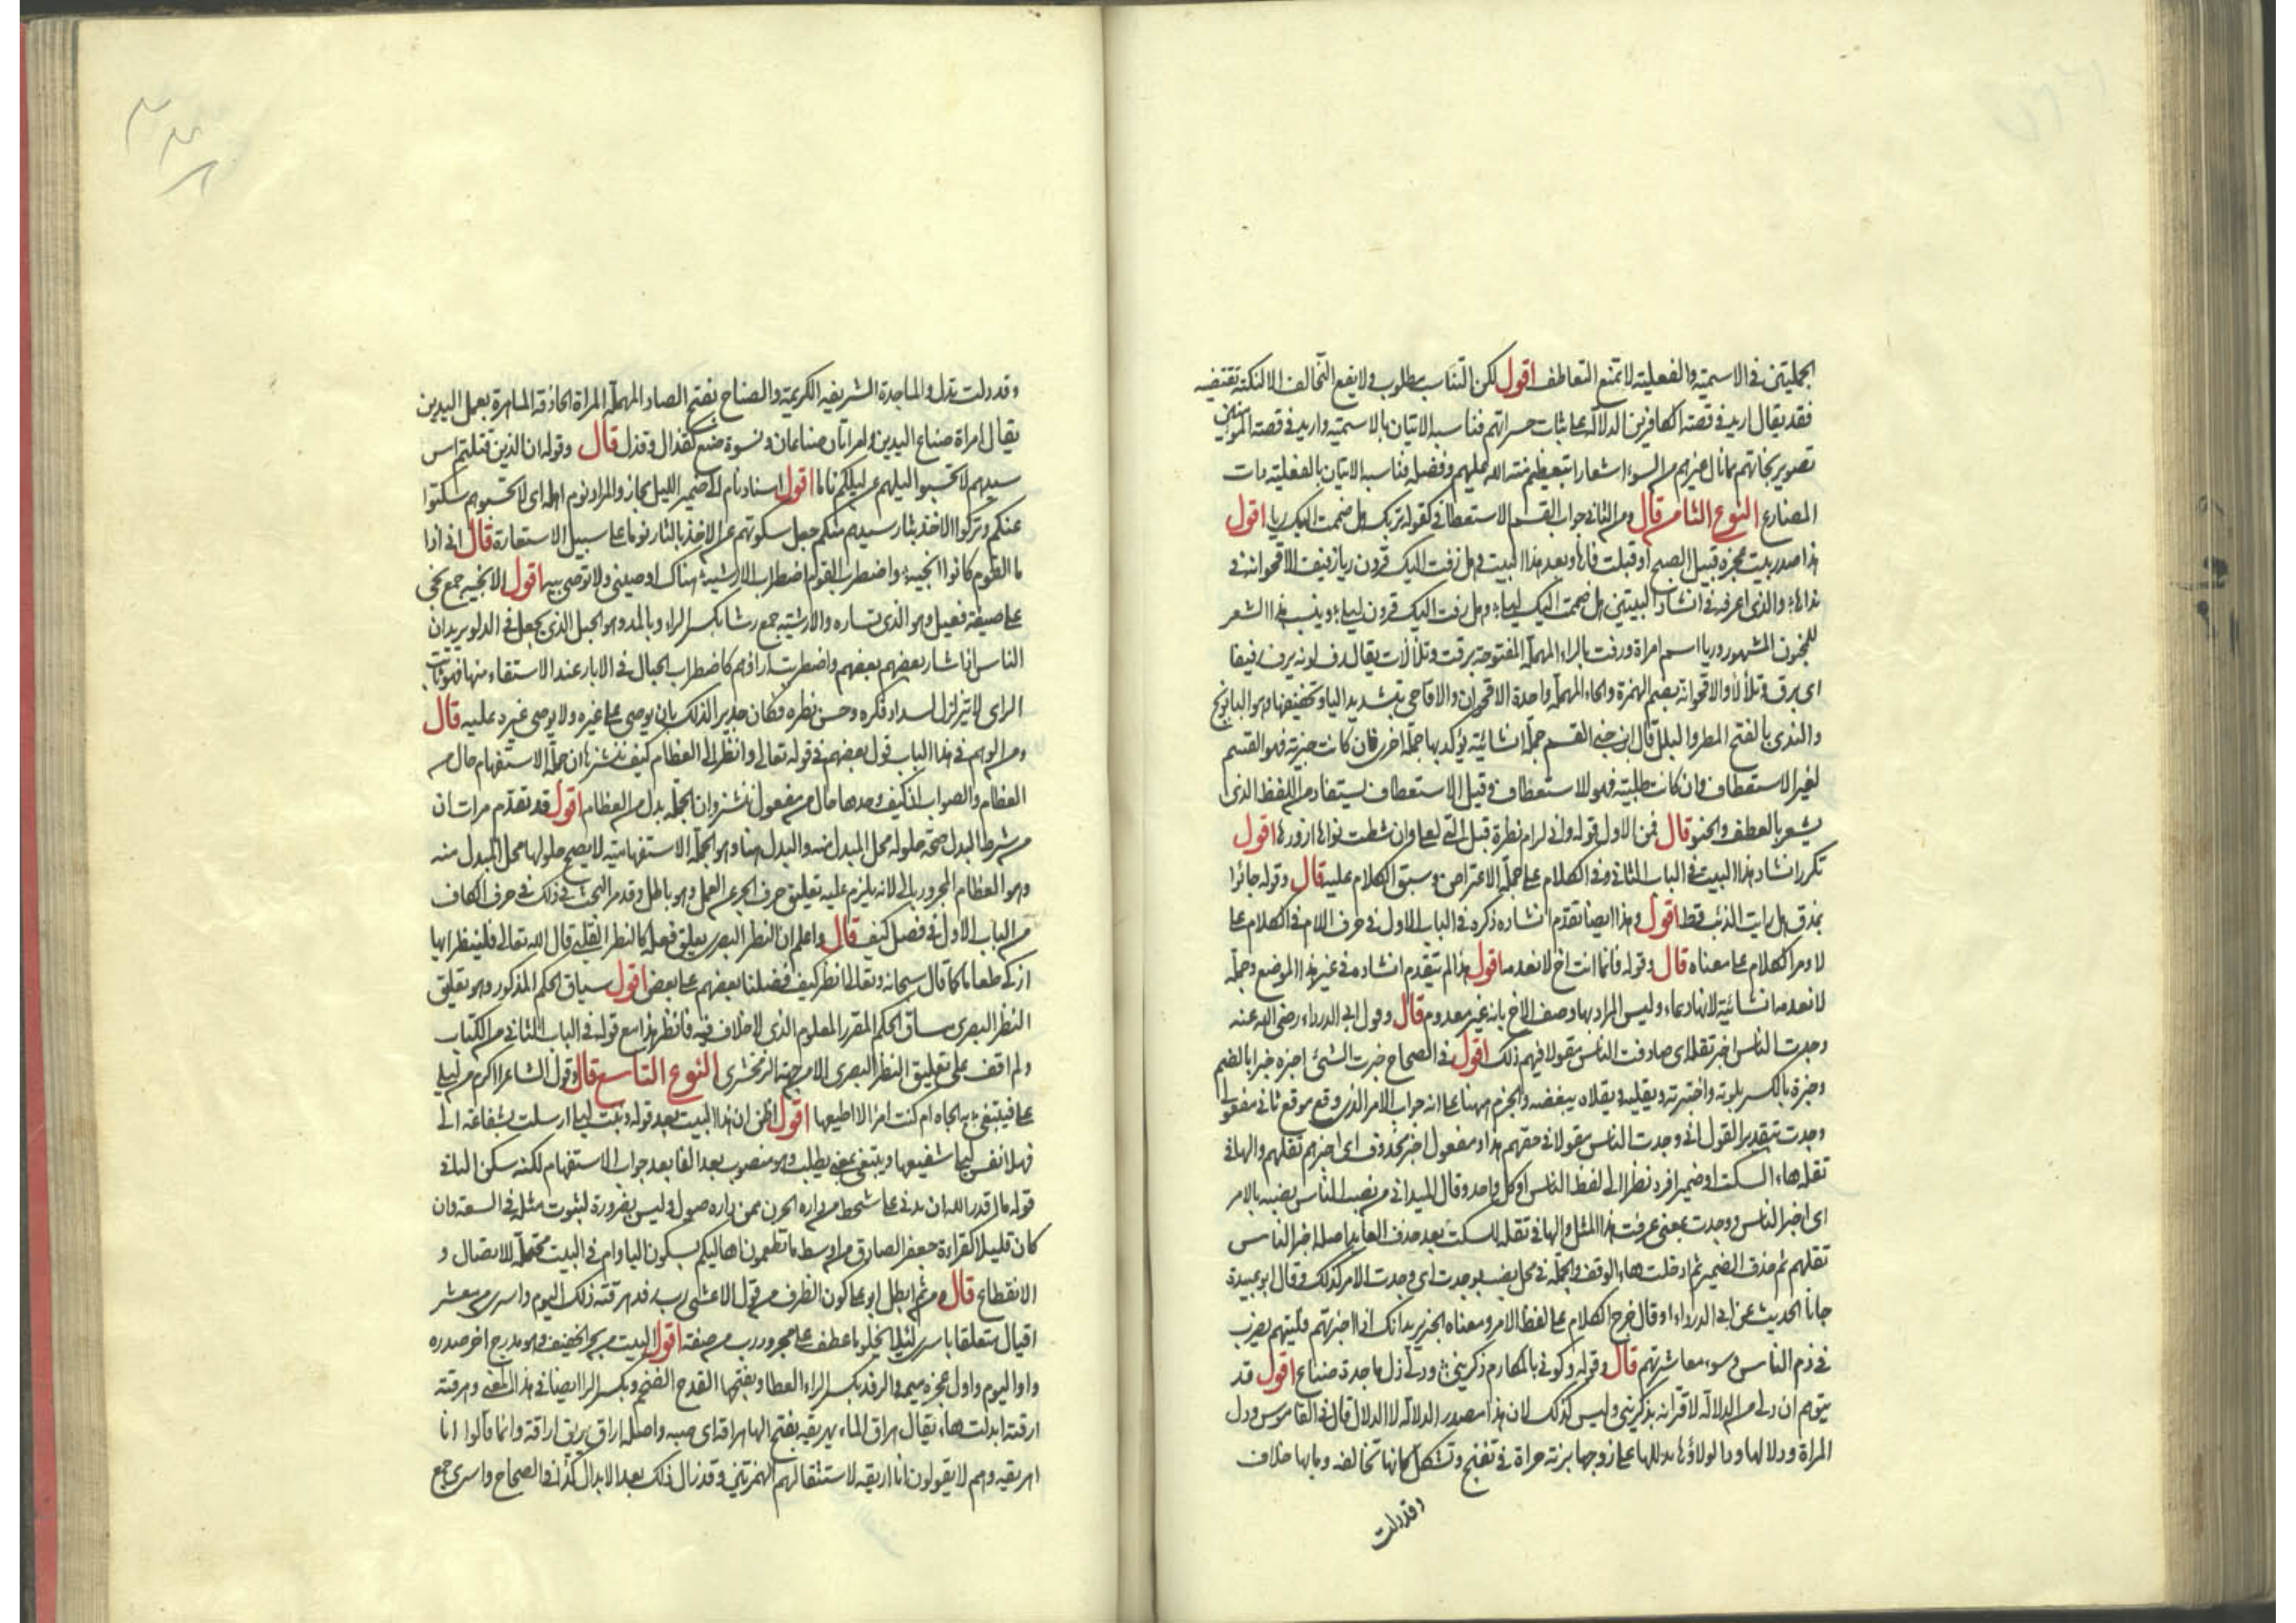 الجملتين في الاسمية والفعلية لا تمنع التعاطف اقول لكن التناسب مطلوب ولا يقع التخالف الا لنكتة تقتضيه
فقد يقال اريد في قصة الكافرين الدلالة على ثبات حسراتهم فناسب الاتيان بالاسمية واريد في قصة المومنين
تصوير نجاتهم بمانال غيرهم من السوء اشعارا بتعظيم منة الله عليهم وفضله فناسبه الاتيان بالفعلية ذات
المضارع النوع الثامن قال ومن الثاني جواب القسم الاستعطافي كقوله بربك هل ضممت اليك ريا اقول
هذا صدر بيت عجزه قبيل الصبح او قبلت فاها وبعد هذا البيت وهل زفت اليك قرون ريا زفيف الاقحوانة في
نداها والذي اعرفه في انشاد البيتين هل ضممت اليك ليلى وهل رفت اليك قرون ليلى وينسب هذا الشعر
للمجنون المشهور وريا اسم امراة ورفت بالراء المهملة المفتوحة برقت وتلألأت يقال رف لونه يرف رفيفا
اى برق وتلألأ والاقحوانة بضم الهمزة والحاء المهملة واحدة الاقحوان والاقاحي بتشديد اليا وتخفيفها وهو البابونج
والندى بالفتح المطر والبلل قال ابن جني القسم جملة انشائية يؤكد بها جملة اخرى فان كانت خبرية فهو القسم
لغير الاستعطاف وان كانت طلبية فهو للاستعطاف وقيل الاستعطاف يستفاد من اللفظ الذي
يشعر بالعطف والحنو قال فمن الاول قوله واني لرام نظرة قبل التي لعلي وان شطت نواها ازورها اقول
تكرر انشاد هذا البيت في الباب الثاني في الكلام على جملة الاعتراض وسبق الكلام عليه قال وقوله جاؤا
بمذق هل رايت الذئب قط اقول وهذا ايضا تقدم انشاده ذكره في الباب الاول في حرف اللام في الكلام على
لا ومر الكلام على معناه قال وقوله فانما انت اخ لا نعدمه اقول هذا لم يتقدم انشاده في غير هذا الموضع وجملة
لا نعدمه انشائية لانها دعاء وليس المراد بها وصف الاخ بانه غير معدوم قال وقول ابي الدرداء رضي الله عنه
وجدت الناس اخبر تقله اى صادفت الناس مقولا فيهم ذلك اقول في الصحاح خبرت الشئ اخبره خبرا بالضم
وخبرة بالكسر بلوته واختبرته ويقليه ويقلاه يبغضه والجزم ههنا على انه جواب الامر الذي وقع موقع ثاني مفعولي
وجدت بتقدير القول اى وجدت الناس مقولا في حقهم هذا ومفعول اخبر محذوف اى اخبرهم تقلهم والها في
تقله هاء السكت او ضمير افرد نظرا الى لفظ الناس او كل واحد وقال الميداني من نصب الناس نصبه بالامر
اى اخبر الناس ووجدت بمعنى عرفت هذا المثل والها في تقله للسكت بعد حذف العايد اصله اخبر الناس
تقلهم ثم حذف الضمير ثم ادخلت هاء الوقف والجملة في محل نصب بوجدت اى وجدت الامر كذلك وقال ابو عبيدة
جانا الحديث عن ابي الدرداء وقال خرج الكلام على لفظ الامر ومعناه الخبر يريد انك اذا اخبرتهم قليتهم يضرب
في ذم الناس وسوء معاشرتهم قال وقوله وكوني بالمكارم ذكريني ودلي دل ماجدة صناع اقول قد
يتوهم ان دلي من الدلالة لاقترانه بذكريني وليس كذلك لان هذا مصدر الدلالة لا الدلال قال في القاموس ودل
المراة ودلالها ودالولاؤها تدللها على زوجها بزنه جراة في تغنج وتشكل كانها تخالفه وما بها خلاف
وقد دلت
وقد دلت تدل والماجدة الشريفة الكريمة والصناع بفتح الصاد المهملة المراة الحاذقة الماهرة بعمل اليدين
يقال امراة صناع اليدين وامراتان صناعان ونسوة صنع كقذال وقذل قال وقوله ان الذين قتلتم امس
سيدهم لا تحسبوا ليلهم عن ليلكم ناما اقول اسناد نام الى ضمير الليل مجاز والمراد نوم اهله اى لا تحسبوهم سكتوا
عنكم وتركوا الاخذ بثار سيدهم منكم جعل سكوتهم عن الاخذ بالثار نوما على سبيل الاستعارة قال اني اذا
ما القوم كانوا انجيه واضطرب القوم اضطراب الارشيه هناك اوصيني ولا توصي بيه اقول الانجيه جمع نجي
على صيغة فعيل وهو الذي تساره والارشيه جمع رشا بكسر الراء وبالمد وهو الحبل الذي يجعل في الدلو يريد ان
الناس اذا شار بعضهم بعضهم واضطربت اراؤهم كاضطراب الحبال في الابار عند الاستقاء منها فهو ثابت
الراى لا يتزلزل لسداد فكره وحسن نظره فكان جديرا لذلك بان يوصى على غيره ولا يوصى غيره عليه قال
ومن الوهم في هذا الباب قول بعضهم في قوله تعالى وانظر الى العظام كيف ننشزها ان جملة الاستفهام حال من
العظام والصواب ان كيف وحدها حال من مفعول ننشز وان الجملة بدل من العظام اقول قد تقدم مرات ان
من شرط البدل صحة حلوله محل المبدل منه والبدل هنا وهو الجملة الاستفهامية لا يصح حلولها محل المبدل منه
وهو العظام المجرور بالى لانه يلزم عليه تعليق حرف الجر عن العمل وهو باطل وقد مر البحث في ذلك في حرف الكاف
من الباب الاول في فصل كيف قال واعلم ان النظر البصري يعلق فعله كالنظر القلبي قال الله تعالى فلينظر ايها
ازكى طعاما كما قال سبحانه وتعالى انظر كيف فضلنا بعضهم على بعض اقول سياق الحكم المذكور وهو تعليق
النظر البصري مساق الحكم المقرر المعلوم الذي لا خلاف فيه فانظر هذا مع قوله في الباب الثاني من الكتاب
ولم اقف على تعليق النظر البصري الا من جهة الزمخشري النوع التاسع قال وقول الشاعر ااكرم من ليلى
على فيتبغى به الجاه ام كنت امرأ لا اطيعها اقول اظن ان هذا البيت بعد قوله ونبئت ليلى ارسلت بشفاعة الى
فهلا نفس ليلى شفيعها ويتبغى بمعنى يطلب وهو منصوب بعد الفا بعد جواب الاستفهام لكنه سكن اليا في
قوله ما اقدر الله ان يدني على شحط من داره الحزن ممن داره صول وليس بضرورة لثبوت مثله في السعة وان
كان قليلا كقراءة جعفر الصادق من اوسط ما تطعمون اهاليكم بسكون اليا وام في البيت محتملة للاتصال و
الانقطاع قال ومن ثم ابطل ابو على كون الظرف من قول الاعشى رب رفد هرقته ذلك اليوم واسرى من معشر
اقيال متعلقا باسرى لئلا يخلو ما عطف على مجرور رب من صفة اقول البيت من بحر الخفيف وهو مدرج اخر صدره
واو اليوم واول عجزه ميم والرفد بكسر الراء العطا وبفتحها القدح الضخم وبكسر الرا ايضا في هذا المعنى وهرقته
ارقته ابدلت هاء يقال هراق الماء يهريقه بفتح الها هراقة اى صبه واصله اراق يريق اراقة وانما قالوا انا
اهريقه وهم لا يقولون انا اريقه لاستثقالهم الهمزتين وقد زال ذلك بعد الابدال كذا في الصحاح واسرى جمع